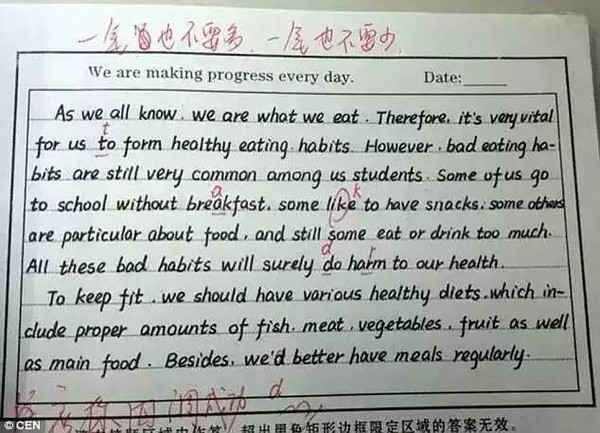 一尾留也不要多,一尾也不要少,
We are making progress every day. Date:
As we all know, we are what we eat. Therefore, it's very vital
t
for us to form healthy eating habits. However, bad eating ha-
bits are still very common among us students. Some of us go
a k
to school without breakfast, some like to have snacks; some others
are particular about food, and still some eat or drink too much.
d r
All these bad habits will surely do harm to our health.
To keep fit, we should have various healthy diets, which in-
clude proper amounts of fish, meat, vegetables, fruit as well
as main food. Besides, we'd better have meals regularly.
成功 d
超出黑色矩形边框限定区域的答案无效。
© CEN